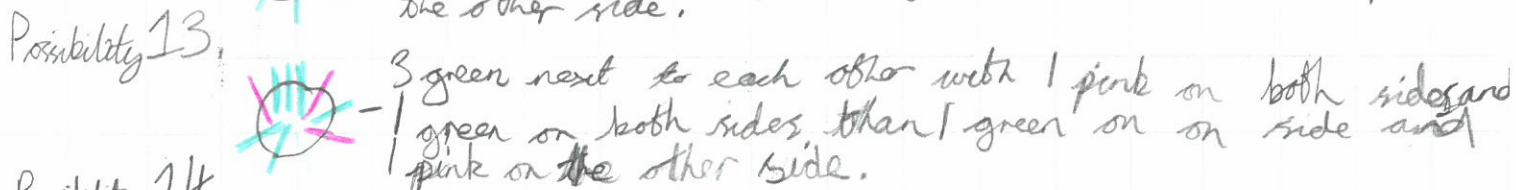 the other side.
Possibility 13.
3 green next to each other with 1 pink on both sides and
1 green on both sides, than 1 green on on side and
1 pink on the other side.
14